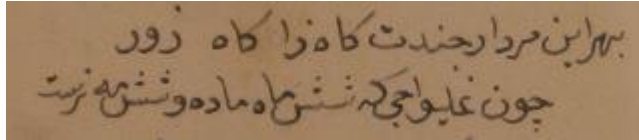 بهر این مردار چندت کاه زا کاه زور
چون غلیواجی که شش ماه ماده و شش مه نرست